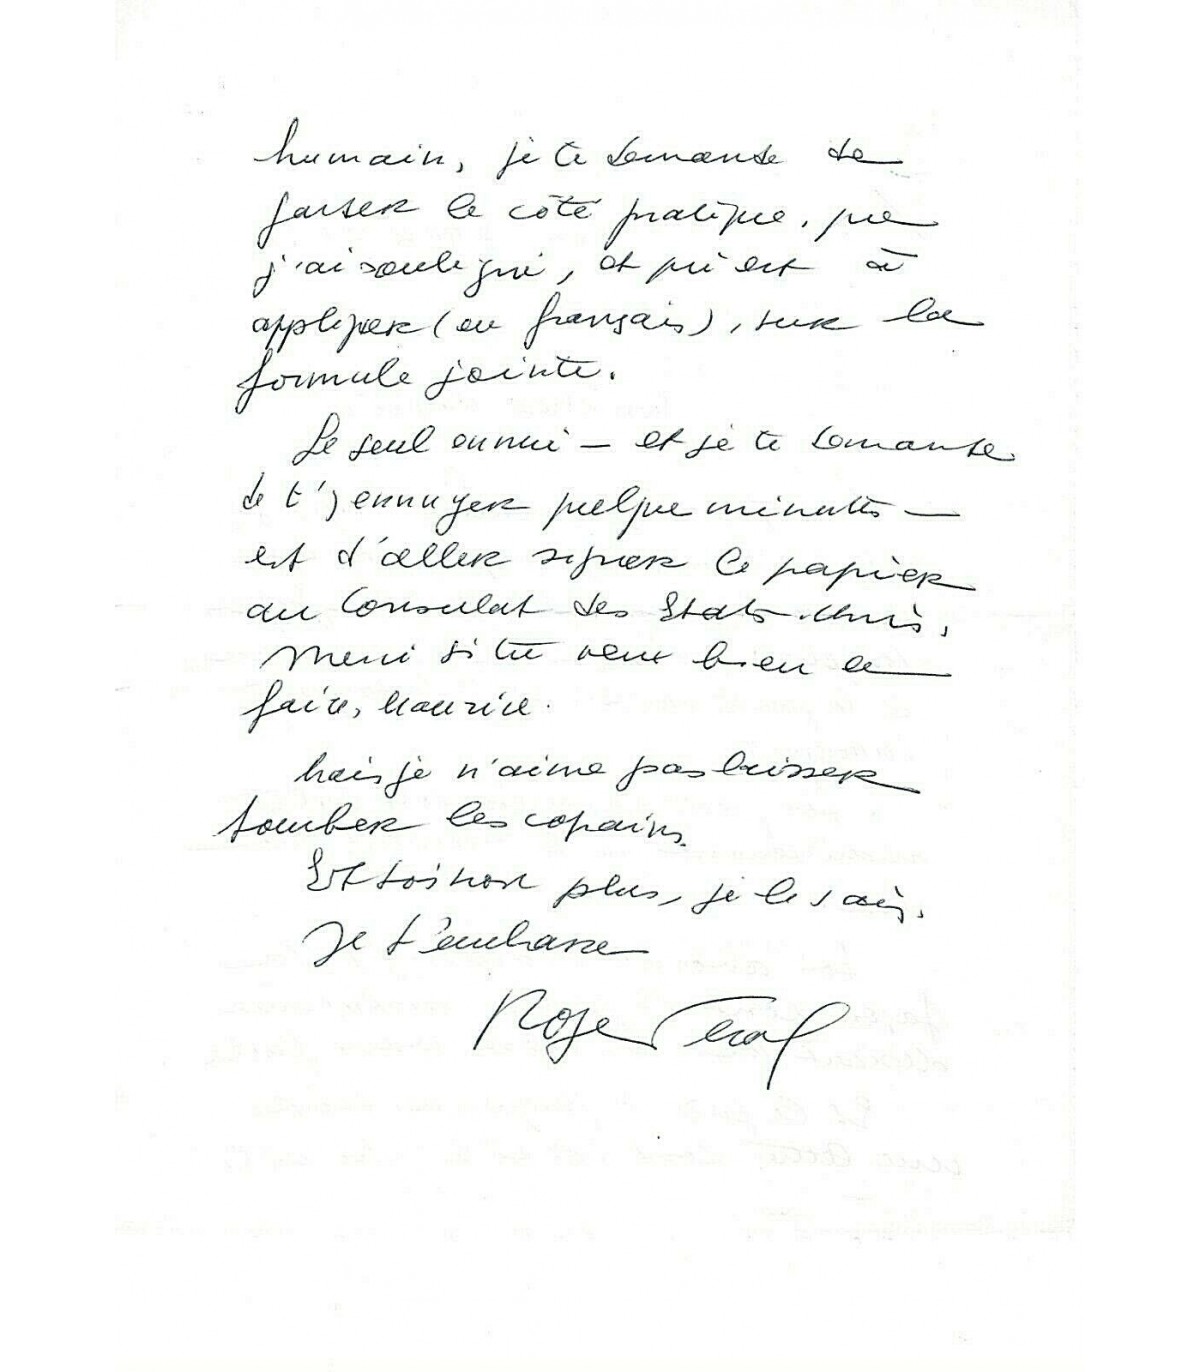 humain, je te demande de
garder le côté pratique, que
j'ai souligné, et qui est à
appliquer (en français), sur la
formule jointe.
Le seul ennui — et je te demande
de t'y ennuyer quelque minutes —
est d'aller signer ce papier
au Consulat des Etats-Unis.
Merci si tu veux bien le
faire, Maurice.
Mais je n'aime pas laisser
tomber les copains.
Et toi non plus, je le sais.
Je t'embrasse
Roger